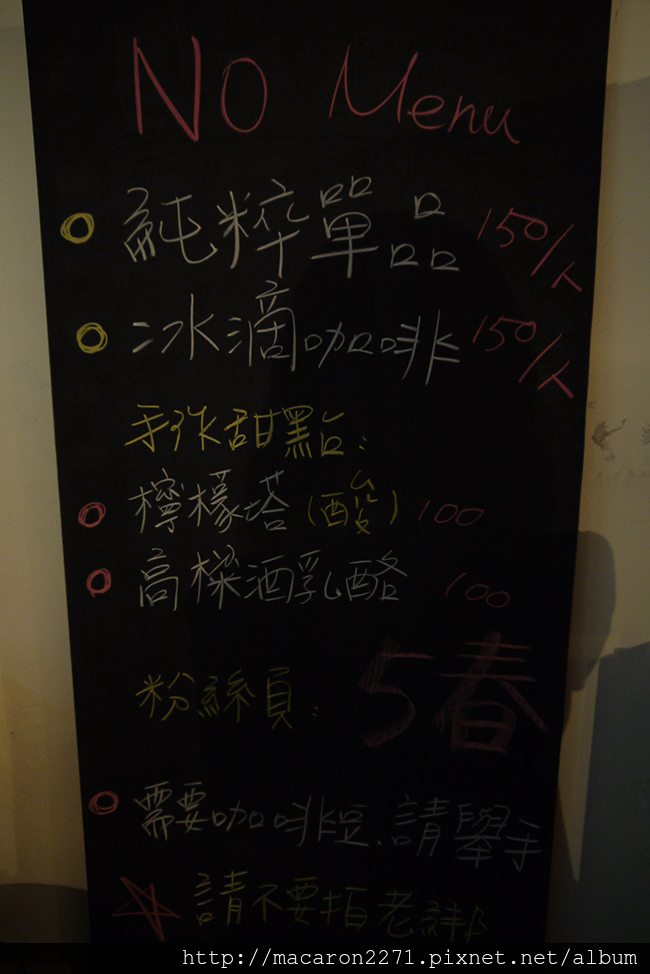 NO Menu
純粹單品 150/人
冰滴咖啡 150/人
手作甜點:
檸檬塔(酸) 100
高樑酒乳酪 100
粉絲頁: 5春
需要咖啡豆、請舉手
請不要拍老綁
http://macaron2271.pixnet.net/album